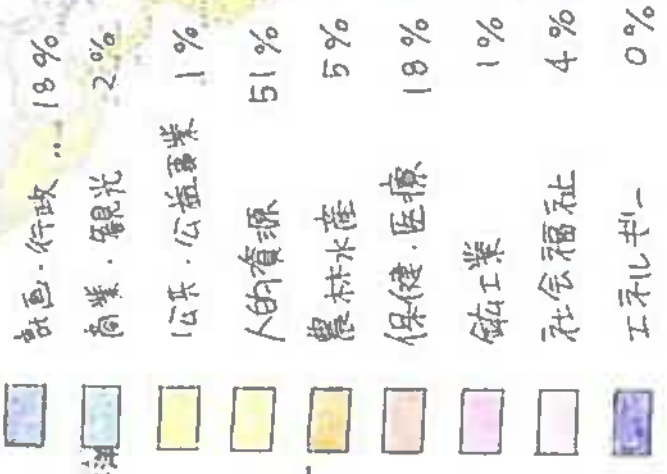 計画・行政 … 18%
商業・観光 2%
公共・公益事業 1%
人的資源 51%
農林水産 5%
保健・医療 18%
鉱工業 1%
社会福祉 4%
エネルギー 0%